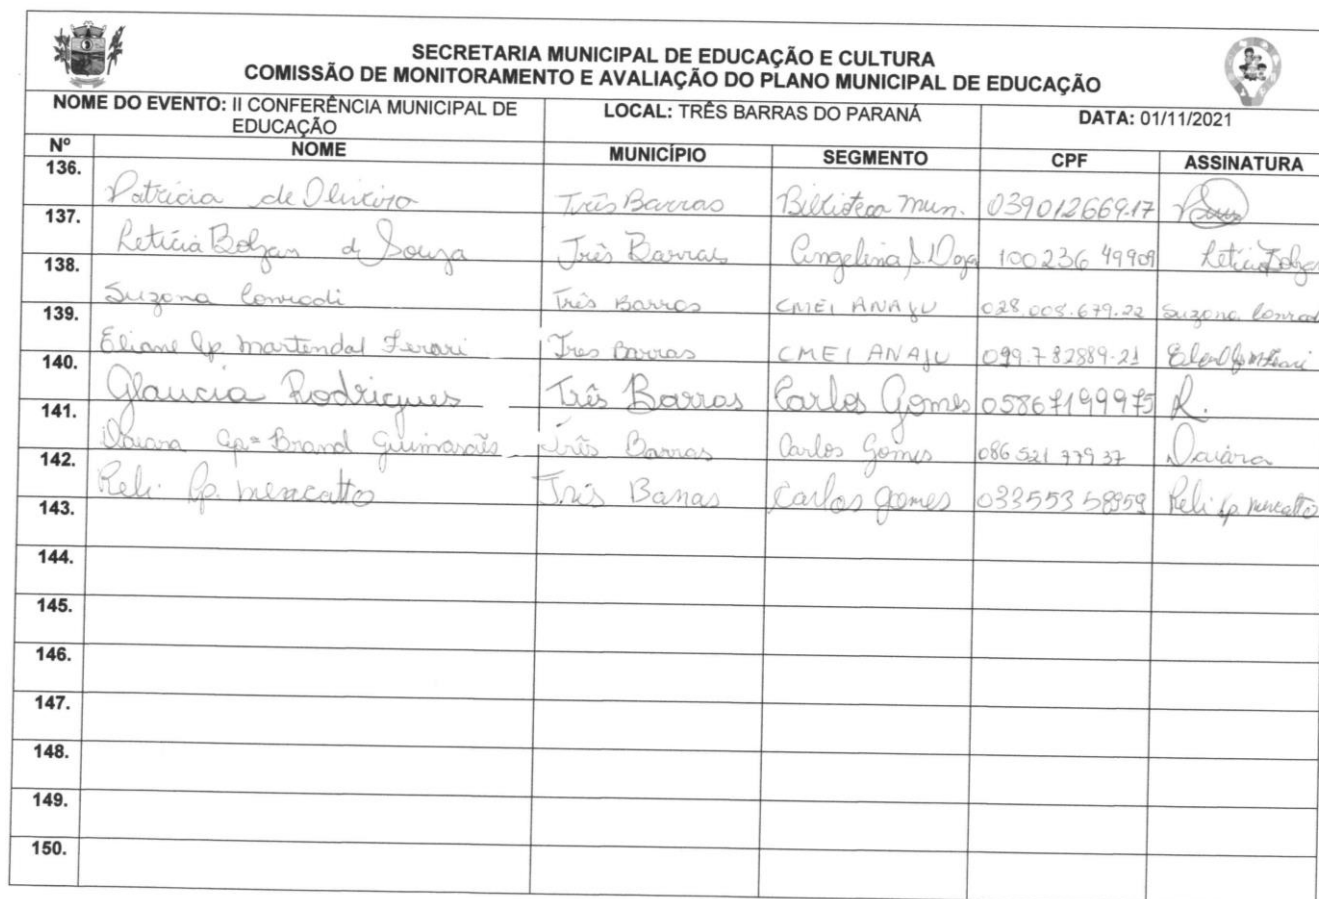 SECRETARIA MUNICIPAL DE EDUCAÇÃO E CULTURA
COMISSÃO DE MONITORAMENTO E AVALIAÇÃO DO PLANO MUNICIPAL DE EDUCAÇÃO
NOME DO EVENTO: II CONFERÊNCIA MUNICIPAL DE EDUCAÇÃO LOCAL: TRÊS BARRAS DO PARANÁ DATA: 01/11/2021
Nº NOME MUNICÍPIO SEGMENTO CPF ASSINATURA
136. Patricia de Oliveira Três Barras Biblioteca mun. 039012669-17
137. Letícia Bolzan d Souza Três Barras Angelina 100236 49909 Letícia Bolzan
138. Suzana Conradi Três Barras CMEI ANAJU 028.008.679-22 Suzana Conrad
139. Eliane Ap. Martendal Ferari Tres Barras CMEI ANAJU 099.782889-21
140. Glaucia Rodrigues Três Barras Carlos Gomes 05867199975
141. Daiara Apª Brand Guimarães Três Barras Carlos Gomes 086 521 779 37 Daiára
142. Reli Ap. Três Barras Carlos Gomes 033553 58959 Reli Ap.
143.
144.
145.
146.
147.
148.
149.
150.